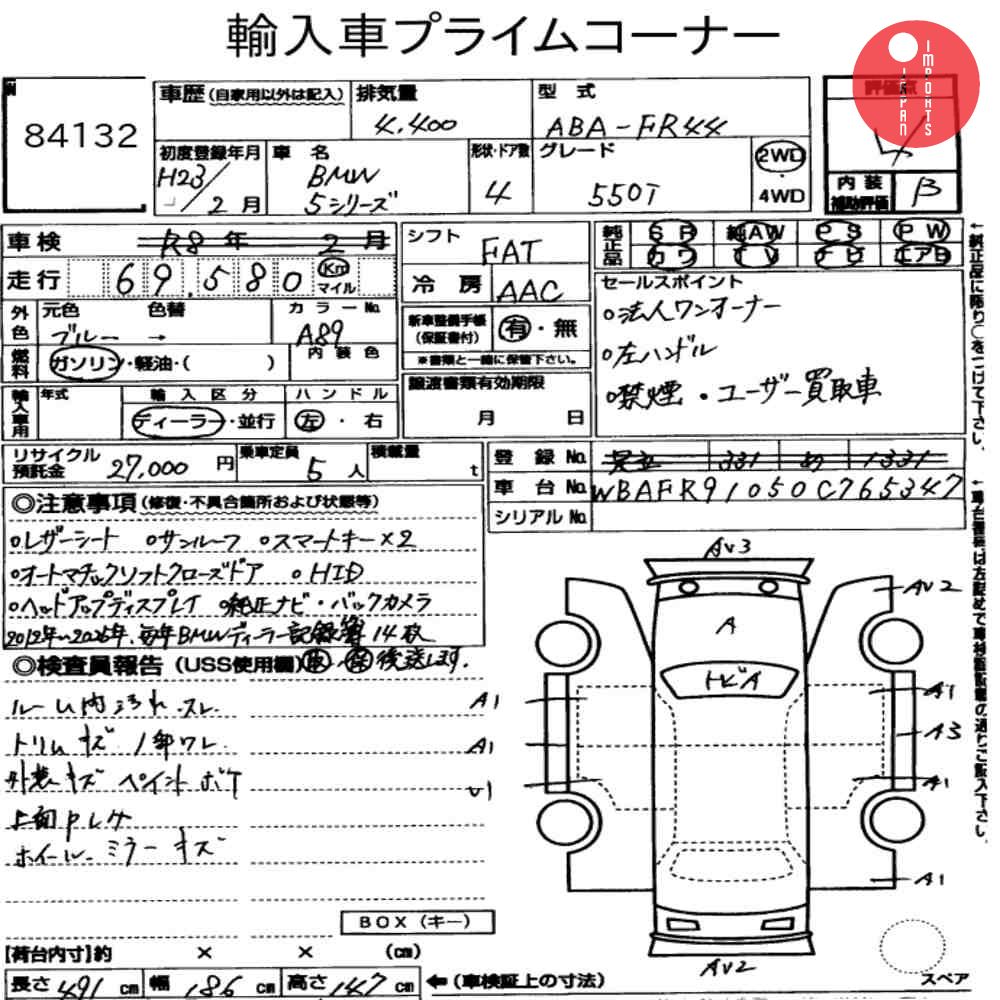 輸入車プライムコーナー
JAPAN IMPORTS
84132
車歴 (自家用以外は記入)
排気量 4.400
型式 ABA-FR44
評価点 4
初度登録年月 H23/2月
車名 BMW 5シリーズ
形状・ドア数 4
グレード 550I
2WD・4WD
内装補助評価 B
車検 R8年 2月
シフト FAT
純正品 SR 純AW PS PW
カワ TV ナビ エアB
走行 69.580 Km マイル
冷房 AAC
セールスポイント
○法人ワンオーナー
○左ハンドル
○禁煙・ユーザー買取車
外色 元色 ブルー → 色替
カラーNo. A89
新車整備手帳(保証書付) 有・無
※書類と一緒に保管下さい。
燃料 ガソリン・軽油・( )
内装色
譲渡書類有効期限
月 日
輸入車用 年式
輸入区分 ディーラー・並行
ハンドル 左・右
リサイクル預託金 27,000円
乗車定員 5人
積載量 t
登録No. 足立 331 め 1331
車台No. WBAFR91050C765347
シリアルNo.
◎注意事項 (修復・不具合箇所および状態等)
○レザーシート ○サンルーフ ○スマートキー×2
○オートマチックソフトクローズドア ○HID
○ヘッドアップディスプレイ ○純正ナビ・バックカメラ
2012年~2025年、毎年BMWディーラー記録簿14枚
◎検査員報告 (USS使用欄) 取 保 後送します。
ルーム内汚れ スレ
トリムキズ 1部ワレ
外装キズ ペイントボケ
上面Pレケ
ホイール、ミラーキズ
AV3
AV2
A
トビA
A1
A1
A1
A3
U1
A1
A1
AV2
BOX (キー)
[荷台内寸]約 × × (cm)
スペア
長さ 491cm 幅 186cm 高さ 147cm ←(車検証上の寸法)
←純正品に限り○をつけて下さい。